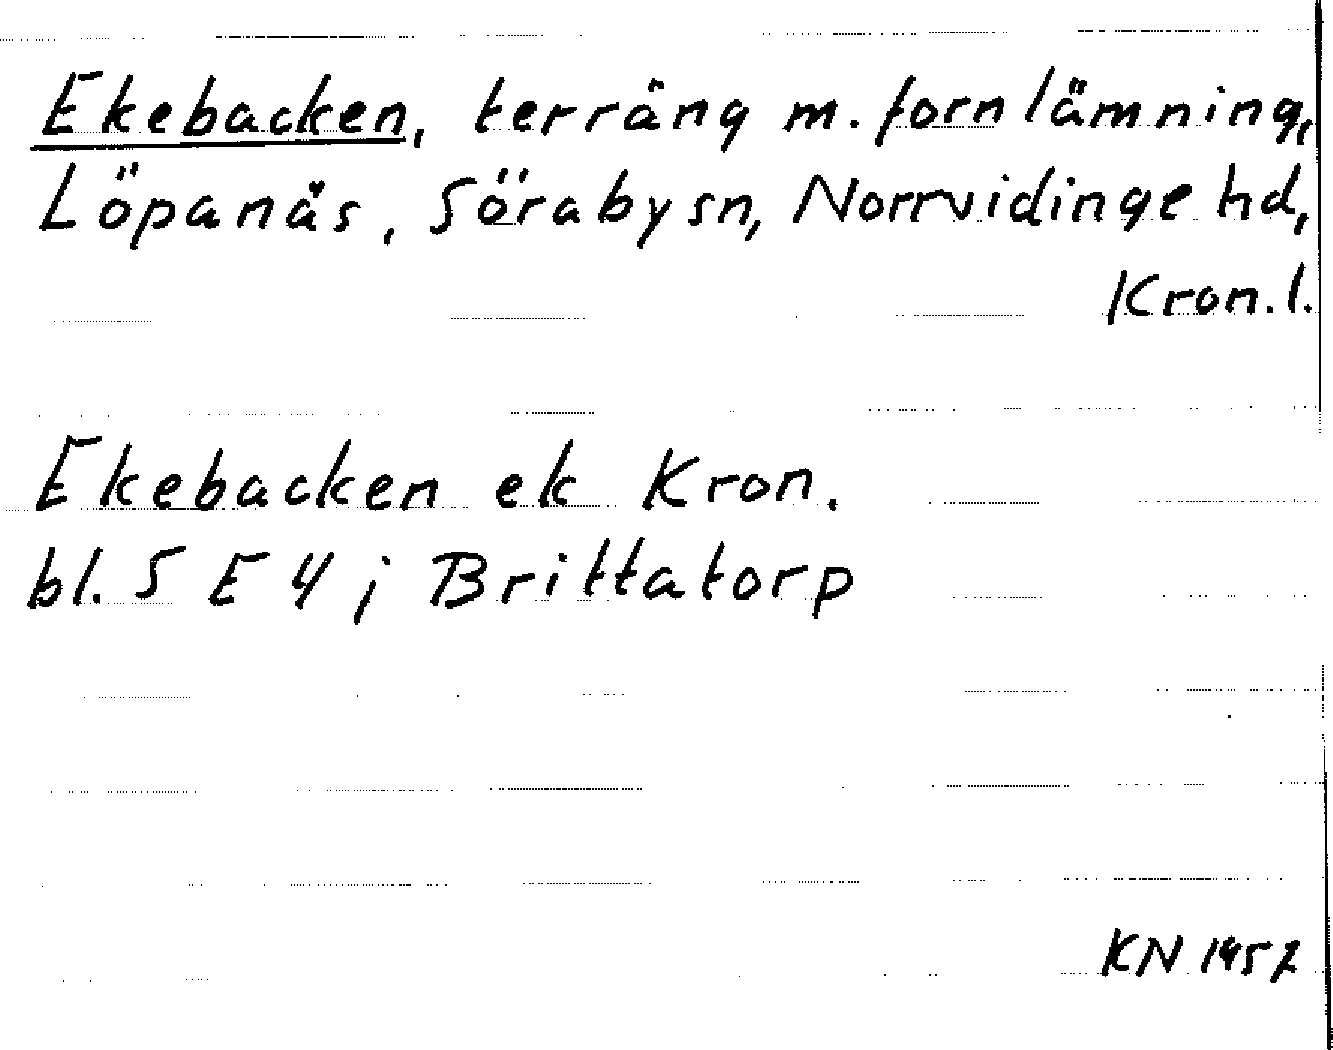 Ekebacken, terräng m. fornlämning,
Löpanäs, Sörabysn, Norrvidinge hd,
Kron. l.
Ekebacken ek Kron.
bl. 5 E 4 j Brittatorp
KN 1957